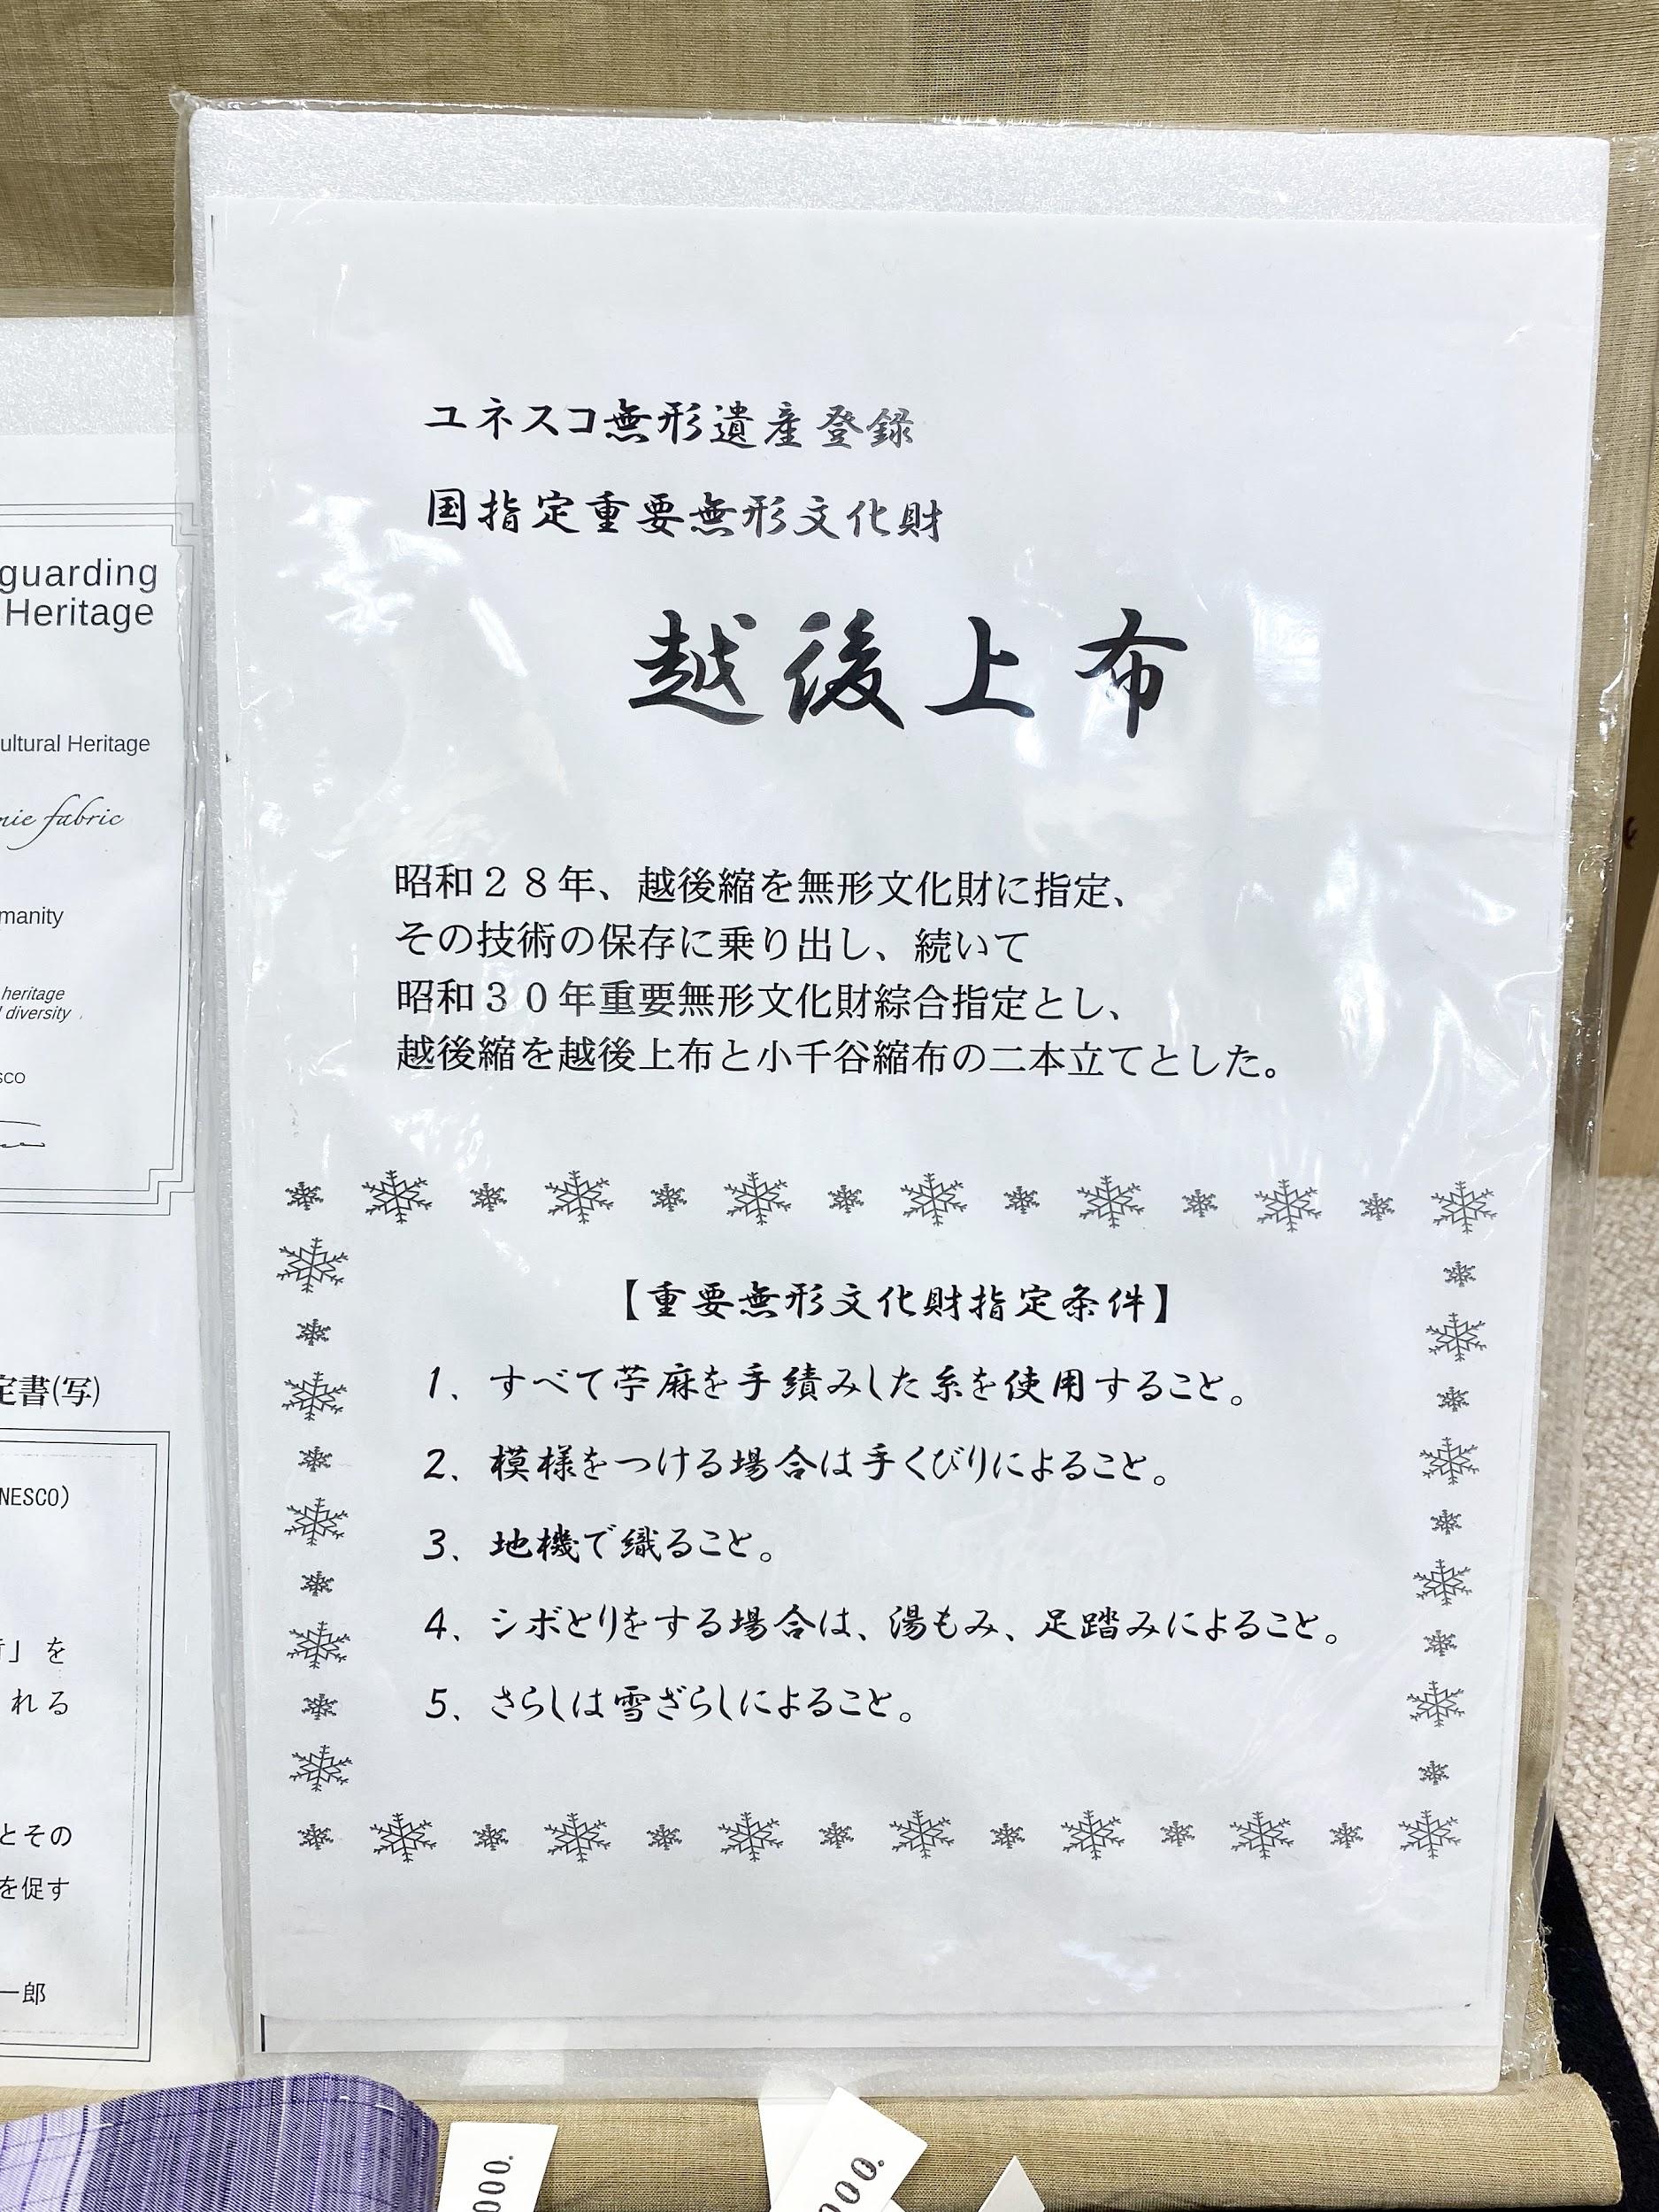 ユネスコ無形遺産登録
国指定重要無形文化財
越後上布
昭和２８年、越後縮を無形文化財に指定、
その技術の保存に乗り出し、続いて
昭和３０年重要無形文化財綜合指定とし、
越後縮を越後上布と小千谷縮布の二本立てとした。
【重要無形文化財指定条件】
1、すべて苧麻を手績みした糸を使用すること。
2、模様をつける場合は手くびりによること。
3、地機で織ること。
4、シボとりをする場合は、湯もみ、足踏みによること。
5、さらしは雪ざらしによること。
guarding
Heritage
ultural Heritage
mie fabric
manity
heritage
diversity
SCO
定書(写)
NESCO)
」を
れる
とその
を促す
一郎
000.
000.